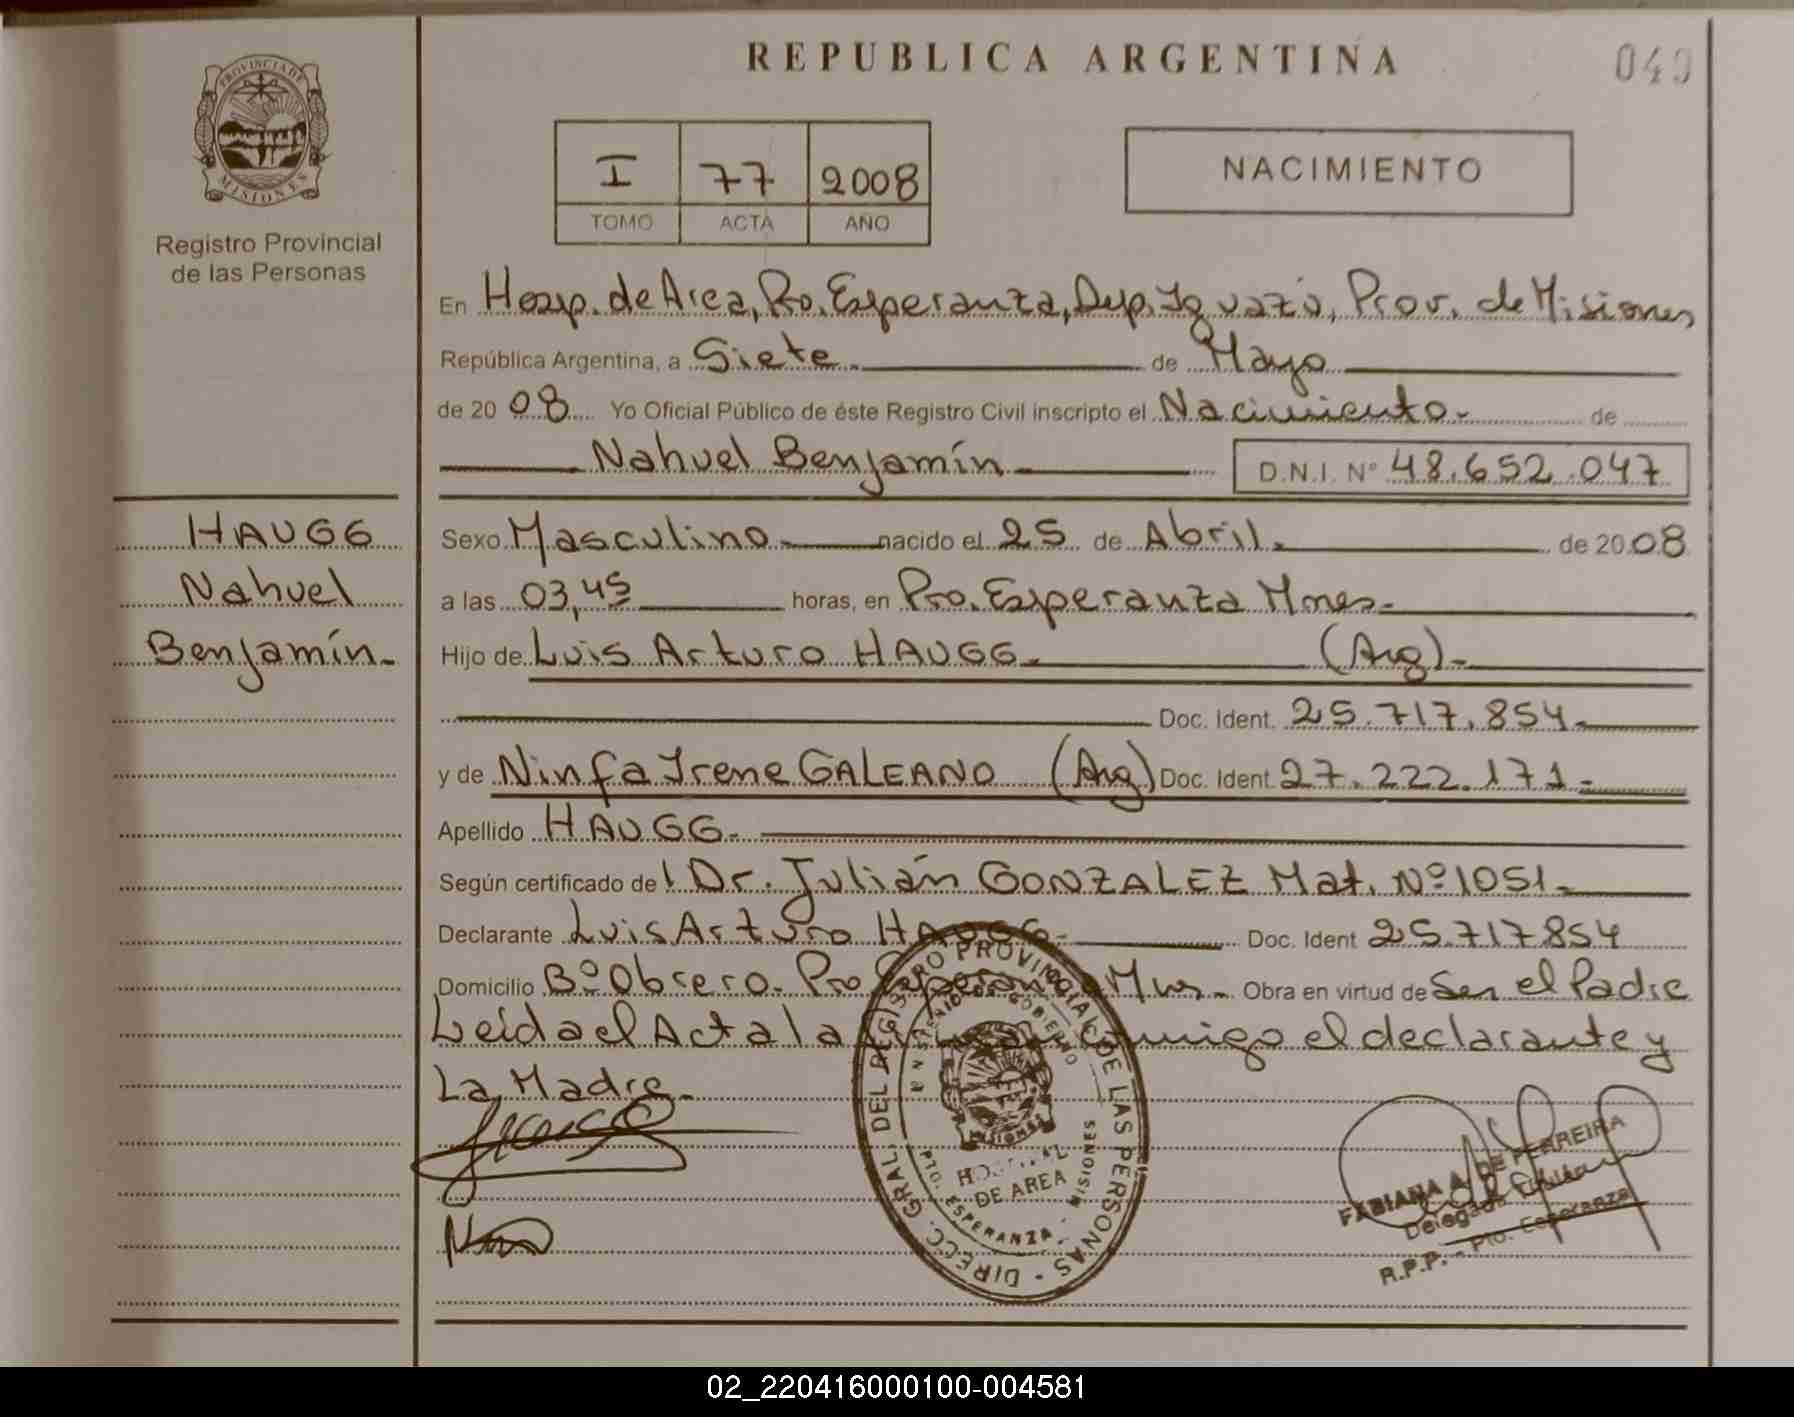 REPUBLICA ARGENTINA
PROVINCIA DE MISIONES
Registro Provincial
de las Personas
I 77 2008
TOMO ACTA AÑO
NACIMIENTO
En Hosp. de Area, Pto. Esperanza, Dep. Iguazú, Prov. de Misiones
República Argentina, a Siete. de Mayo
de 20 08 Yo Oficial Público de éste Registro Civil inscripto el Nacimiento.- de
Nahuel Benjamín D.N.I. Nº 48.652.047
HAUGG
Nahuel
Benjamín.-
Sexo Masculino.- nacido el 25 de Abril.- de 20 08
a las 03,45 horas, en Pto. Esperanza Mnes.-
Hijo de Luis Arturo HAUGG.- (Arg).-
Doc. Ident. 25.717.854.-
y de Ninfa Irene GALEANO (Arg) Doc. Ident. 27.222.171.-
Apellido HAUGG.-
Según certificado del Dr. Julián GONZALEZ Mat. Nº 1051.-
Declarante Luis Arturo HAUGG.- Doc. Ident 25.717854
Domicilio Bº Obrero. Pto Esperanza Mns.- Obra en virtud de Ser el Padre
Leída el Acta la conmigo el declarante y
La Madre.-
DIRECC. GRAL. DEL REGISTRO PROVINCIAL DE LAS PERSONAS
MINISTERIO DE GOBIERNO
MISIONES
HOSPITAL
DE AREA
PTO. ESPERANZA - MISIONES
FABIANA A. DE FERREIRA
Delegada
R.P.P. - Pto. Esperanza
02_220416000100-004581